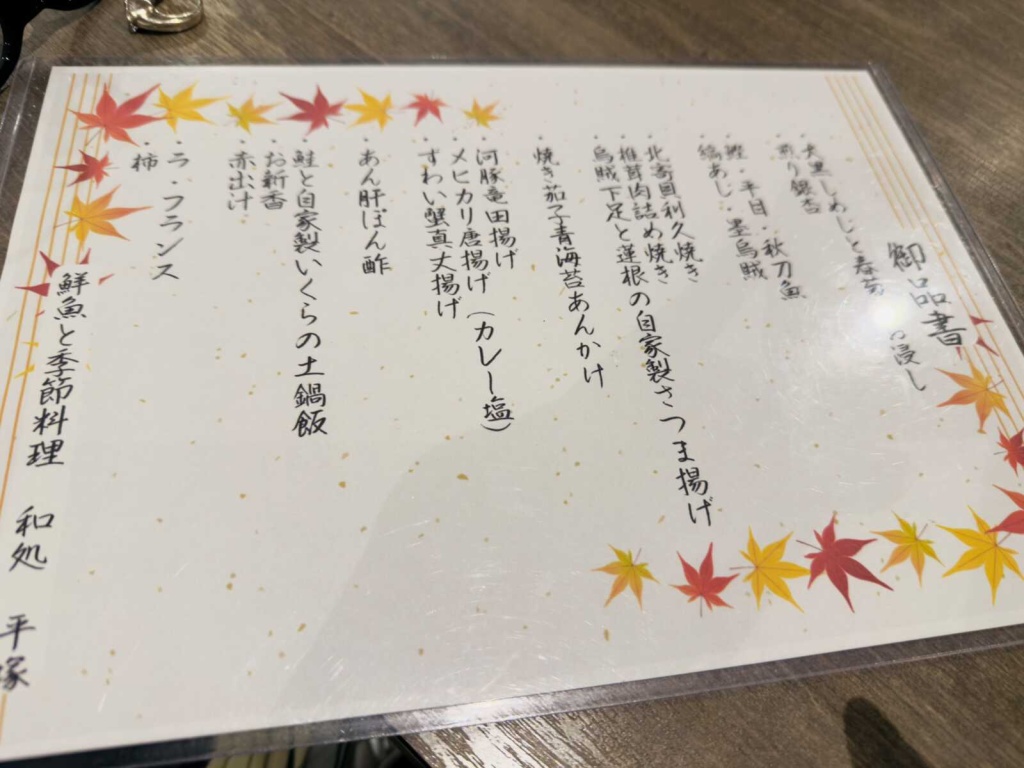 御品書
・大黒しめじと春菊のお浸し
・煎り銀杏
・鰹・平目・秋刀魚
縞あじ・墨烏賊
・北寄貝利久焼き
・椎茸肉詰め焼き
・烏賊下足と蓮根の自家製さつま揚げ
・焼き茄子青海苔あんかけ
・河豚竜田揚げ
・メヒカリ唐揚げ(カレー塩)
・ずわい蟹真丈揚げ
・あん肝ぽん酢
・鮭と自家製いくらの土鍋飯
・お新香
・赤出汁
・ラ・フランス
・柿
鮮魚と季節料理 和処 平塚